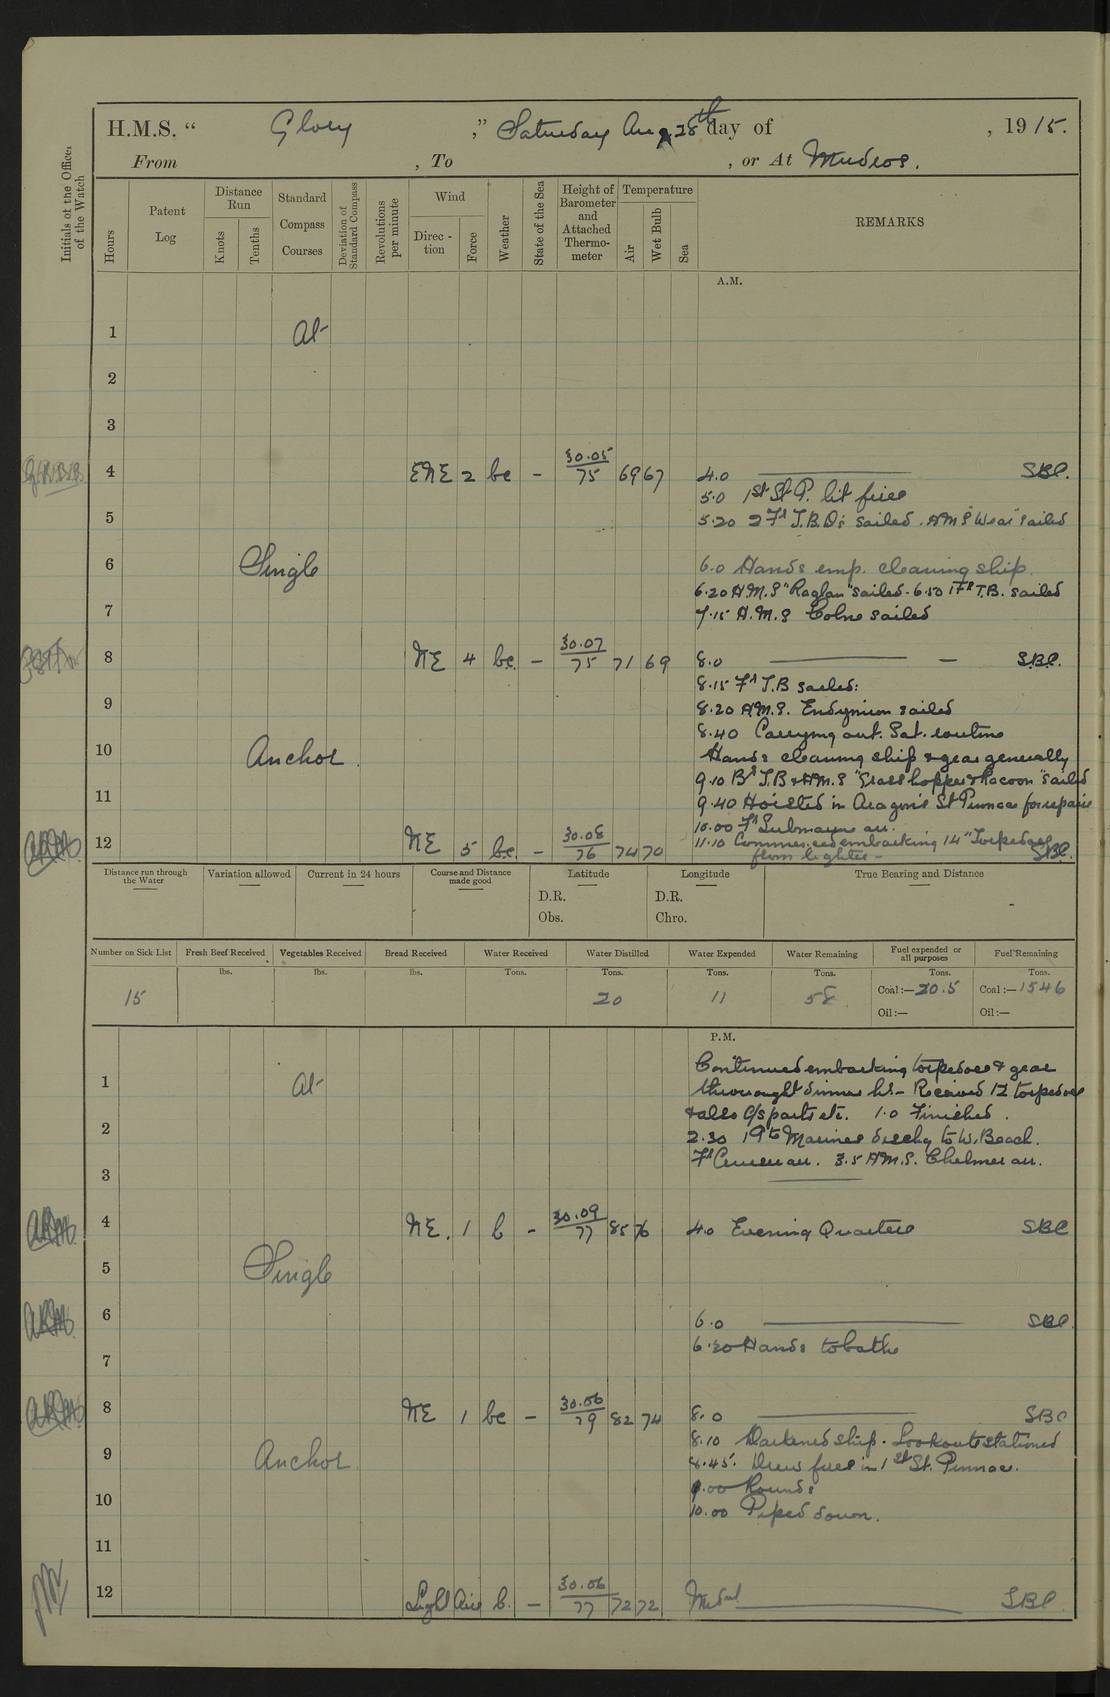 H.M.S. “ Glory ,” Saturday Aug 28th day of , 1915.
From , To , or At Mudros.
Initials of the Officer of the Watch
Hours
Patent Log
Distance Run
Knots
Tenths
Standard Compass Courses
Deviation of Standard Compass
Revolutions per minute
Wind
Direction
Force
Weather
State of the Sea
Height of Barometer and Attached Thermometer
Temperature
Air
Wet Bulb
Sea
REMARKS
A.M.
1 At
2
3
4 ENE 2 bc - 30.05 75 69 67 4.0 SBC.
5.0 1st St P. lit fires
5 5.20 2 Fh T.B.Ds sailed. HMS Wear sailed
6 Single 6.0 Hands emp. cleaning ship.
6.20 H.M.S "Raglan" sailed. 6.50 1 Fh T.B. sailed
7 7.15 H.M.S Colne sailed
8 NE 4 bc. - 30.07 75 71 69 8.0 SBC.
8.15 Fh T.B sailed:
9 8.20 H.M.S. Endymion sailed
8.40 Carrying out Sat. routine
10 Anchor. Hands cleaning ship & gear generally
9.10 Bh T.B & HM.S "Grasshopper & Racoon" sailed
11 9.40 Hoisted in Aragon's St Pinnace for repairs
10.00 Fh Submarine arr.
12 NE 5 bc - 30.08 76 74 70 11.10 Commenced embarking 14" Torpedoes
from lighter - SBC.
Distance run through the Water
Variation allowed
Current in 24 hours
Course and Distance made good
Latitude
D.R.
Obs.
Longitude
D.R.
Chro.
True Bearing and Distance
Number on Sick List
Fresh Beef Received
Vegetables Received
Bread Received
Water Received
Water Distilled
Water Expended
Water Remaining
Fuel expended or all purposes
Fuel Remaining
lbs. lbs. lbs. Tons. Tons. Tons. Tons. Tons. Tons.
15 20 11 58 Coal:—20.5 Coal:—1546
Oil:— Oil:—
P.M.
Continued embarking torpedoes & gear
1 At throughout dinner hr - Received 12 torpedoes
& also C/S parts etc. 1.0 Finished.
2 2.30 19 Marines dischg to W. Beach.
3 Fh Cruiser arr. 3.5 HM.S. Chelmer arr.
4 NE. 1 b - 30.09 77 85 76 4.0 Evening Quarters SBC
5 Single
6 6.0 SBC.
7 6.30 Hands to bathe
8 NE 1 bc - 30.06 79 82 74 8.0 SBC
8.10 Darkened ship. Lookouts stationed
9 Anchor. 8.45. Drew fires in 1st St. Pinnace.
9.00 Rounds
10 10.00 Piped down.
11
12 Light Airs b. - 30.06 77 72 72 Midnt SBC